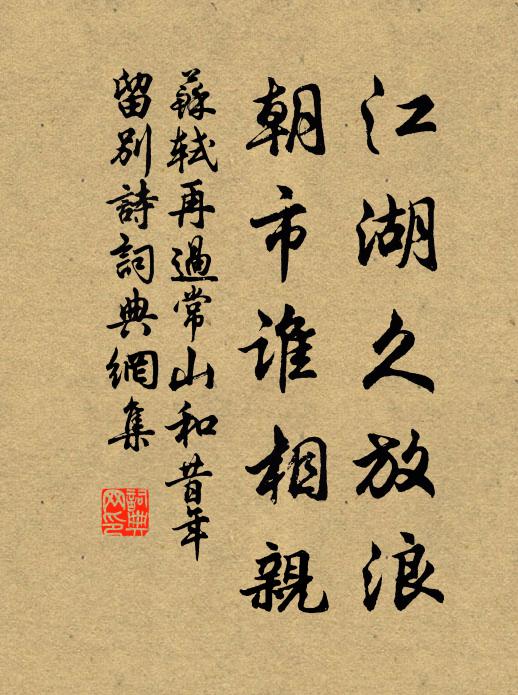 江湖久放浪
朝市誰相親
蘇軾再過常山和昔年
留別詩詞典網集
詞典網印